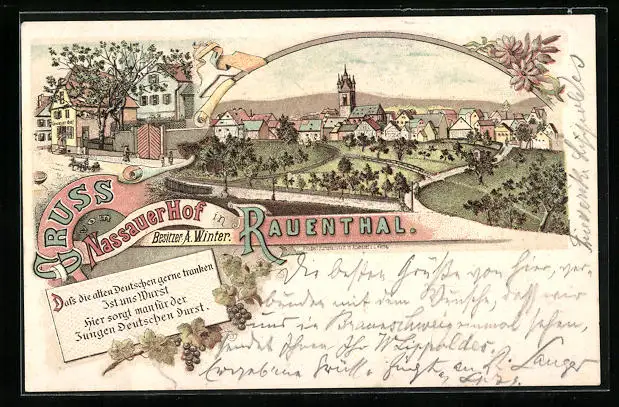 GRUSS
vom
NASSAUER HOF in
Besitzer, A. Winter.
RAUENTHAL.
Daß die alten Deutschen gerne tranken
Ist uns Wurst
Hier sorgt man für der
Jungen Deutschen Durst.
Die besten Grüße von hier, ver-
bunden mit dem Wunsche, daß wir
uns in Braunschweig einmal sehen,
sendet Ihnen Ihr W Lippoldes
Ergebene Grüße